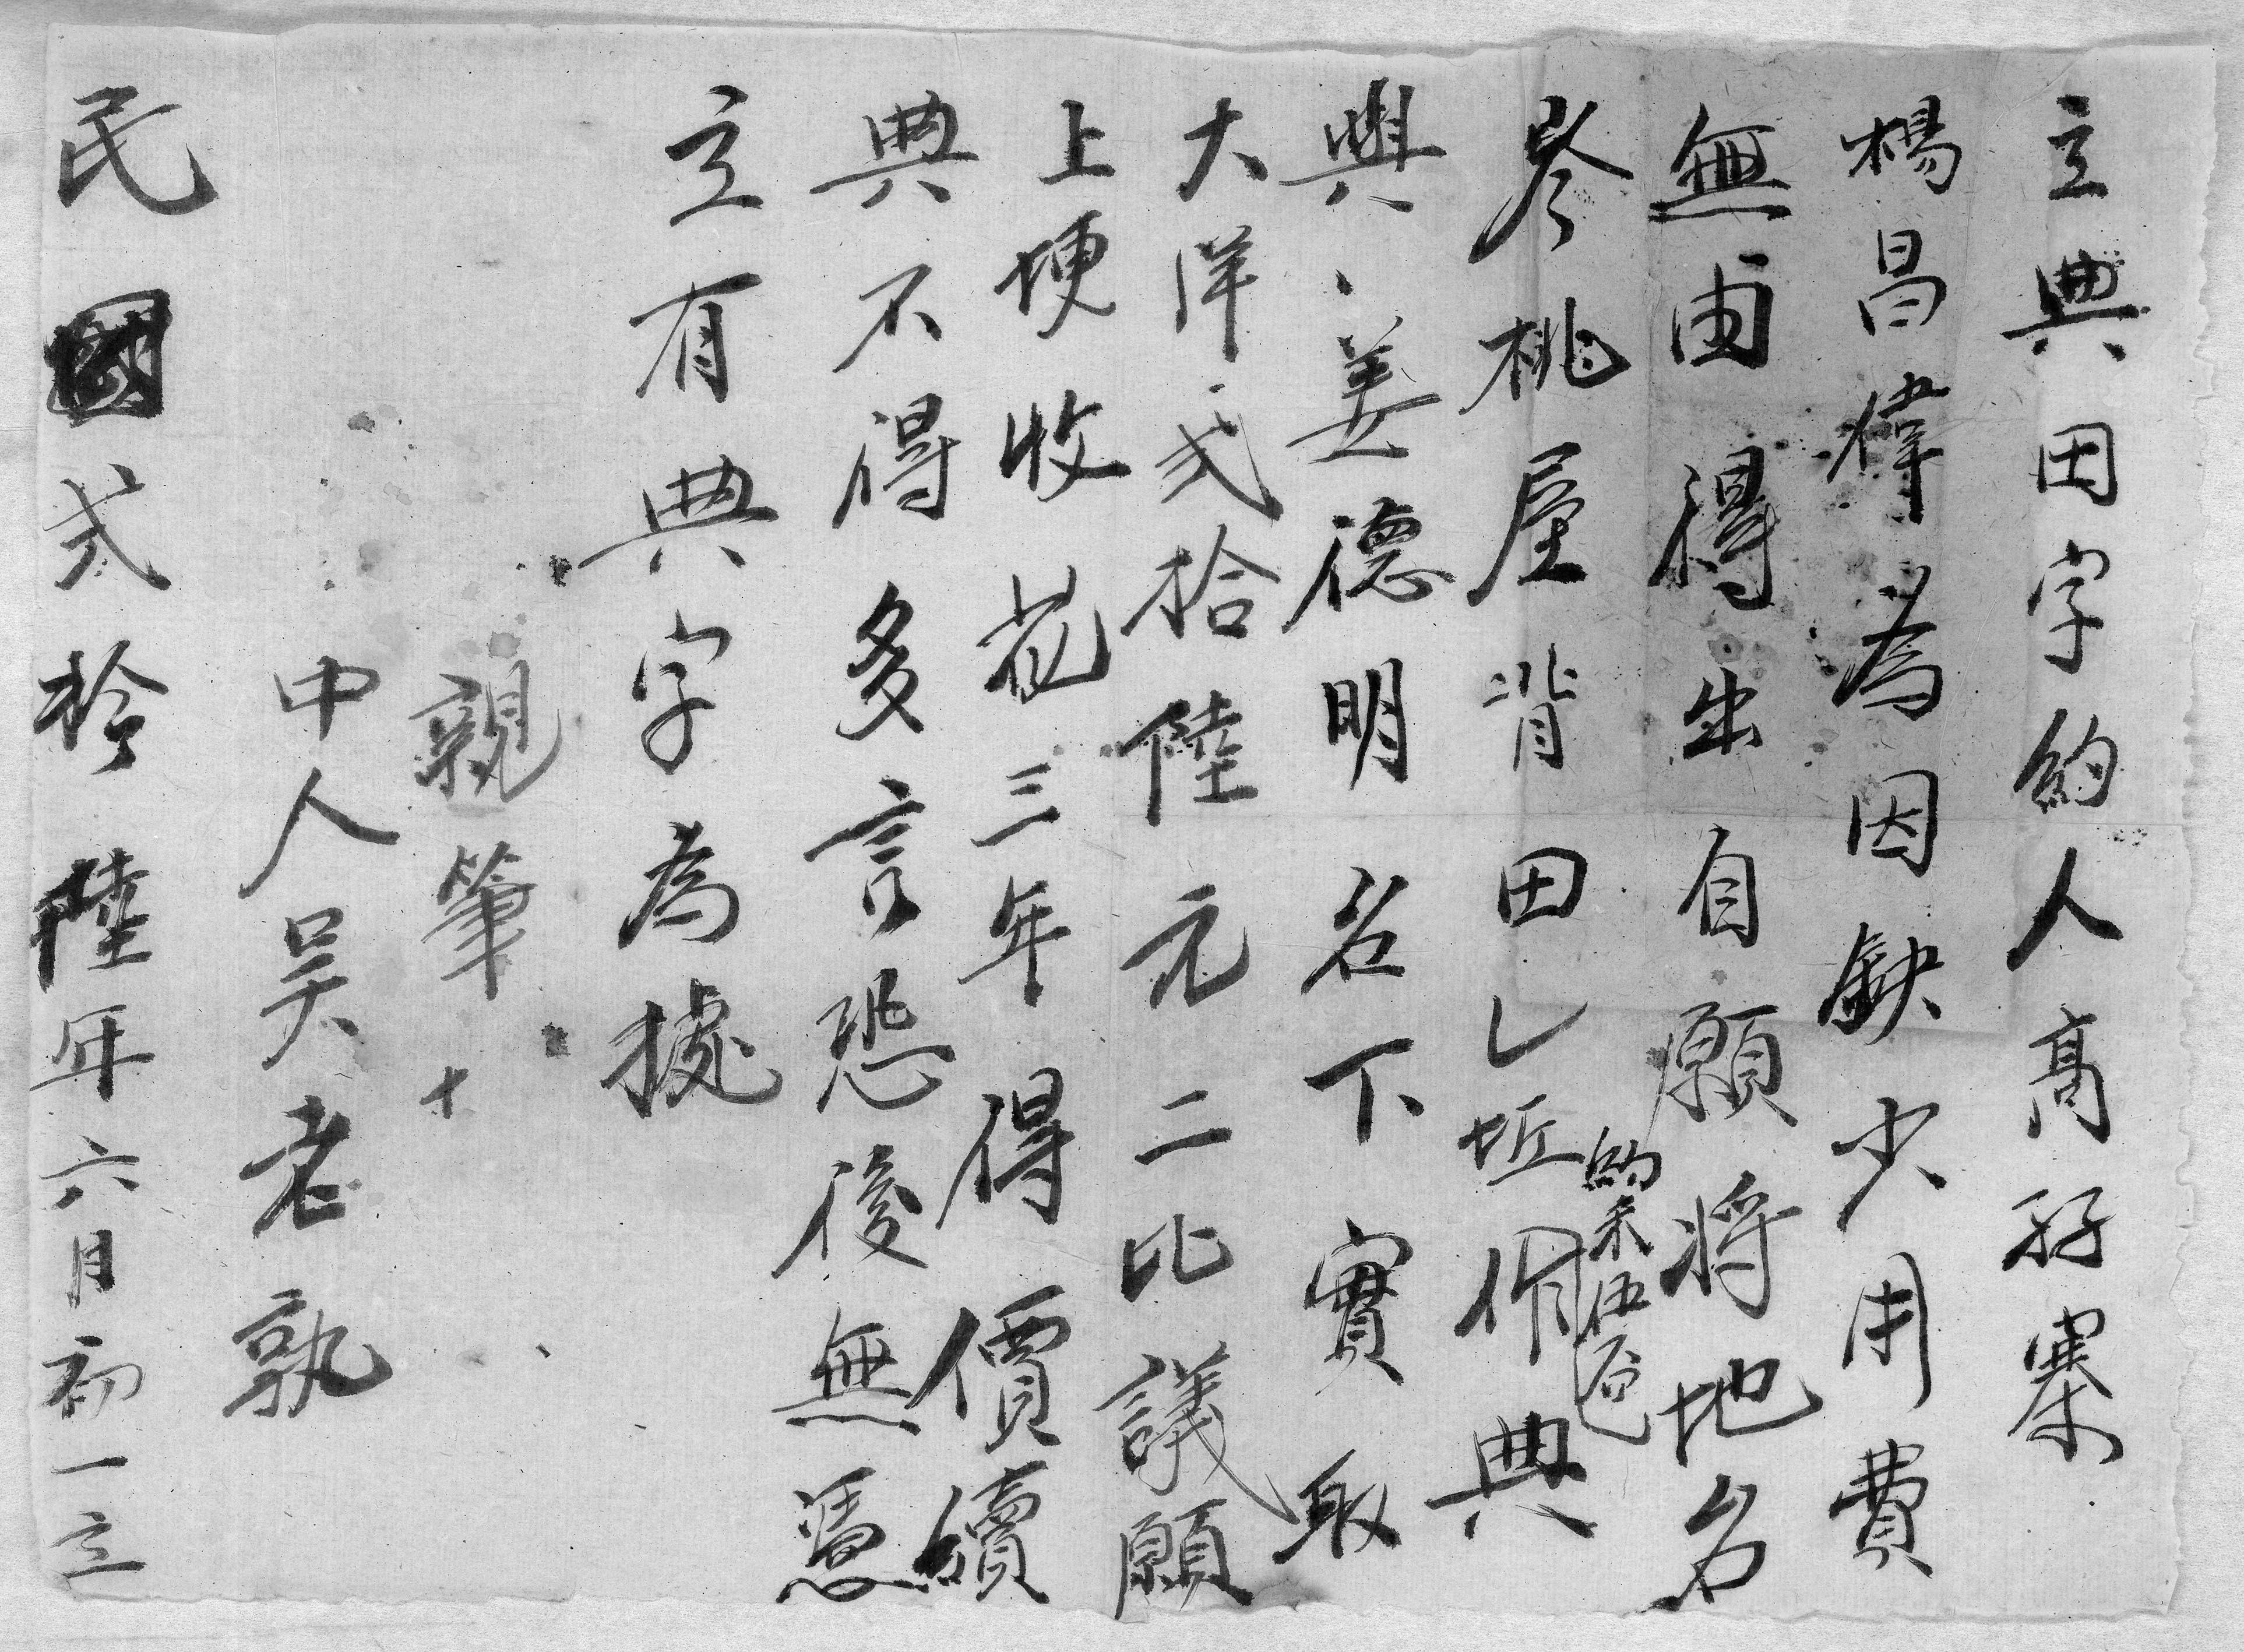 立典田字約人高孖寨
楊昌煒為因缺少用費
無由得出自願將地名
岑桃屋背田乚坵作典
的禾伍
與姜德明名下實取
大洋弍拾陸元二比議願
上埂收花三年得價續
典不得多言恐後無憑
立有典字為據
親筆十
中人吳老孰
民國弍拾陸年六月初一立